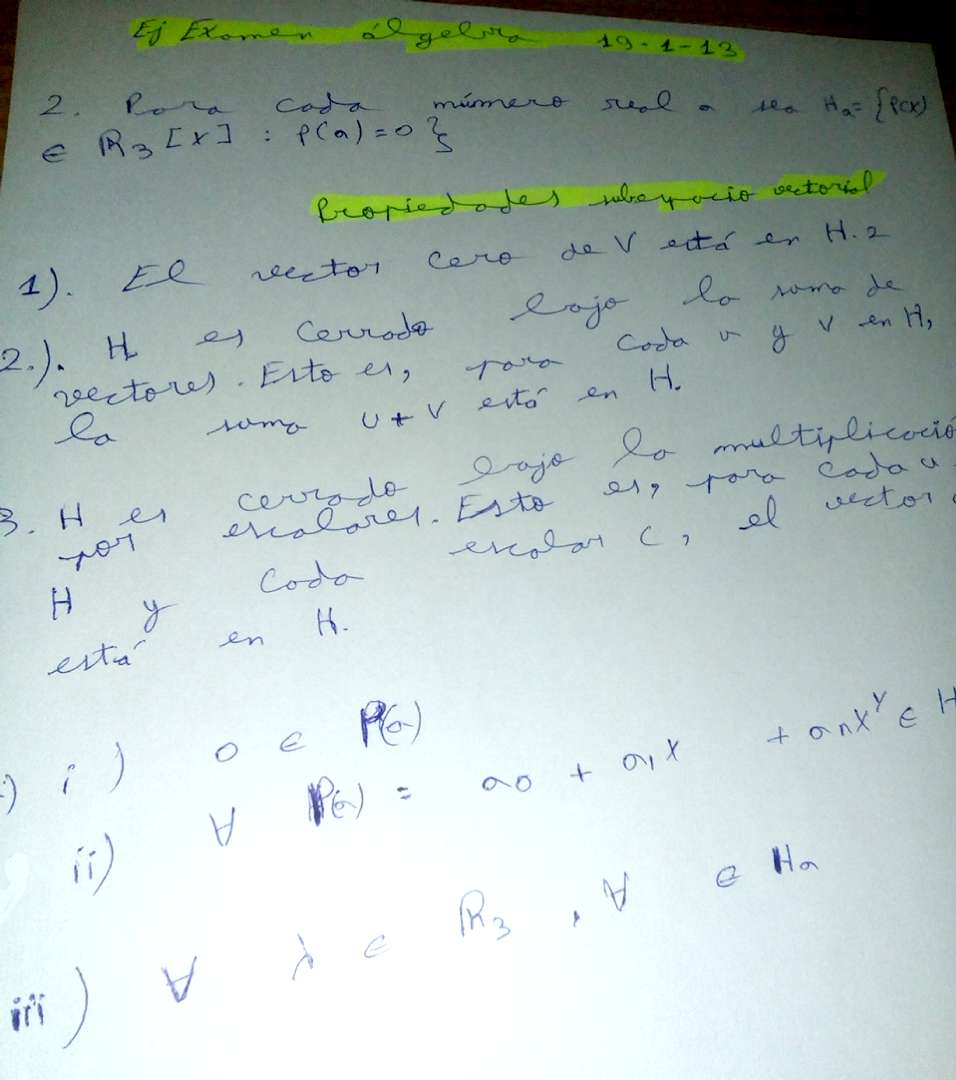 Ej Examen álgebra 19-1-13
2. Para cada número real a sea Ha = {P(X)
∈ R3 [X] : P(a) = 0}
Propiedades subespacio vectorial
1). El vector cero de V está en H. 2
2.). H es cerrado bajo la suma de
vectores. Esto es, para cada u y V en H,
la suma U + V está en H.
3. H es cerrado bajo la multiplicació
por escalares. Esto es, para cada u
H y cada escalar C, el vector
está en H.
i) 0 ∈ P(a)
ii) ∀ P(a) = a0 + a1X + anX ∈ H
iii) ∀ λ ∈ R3, ∀ ∈ Ha